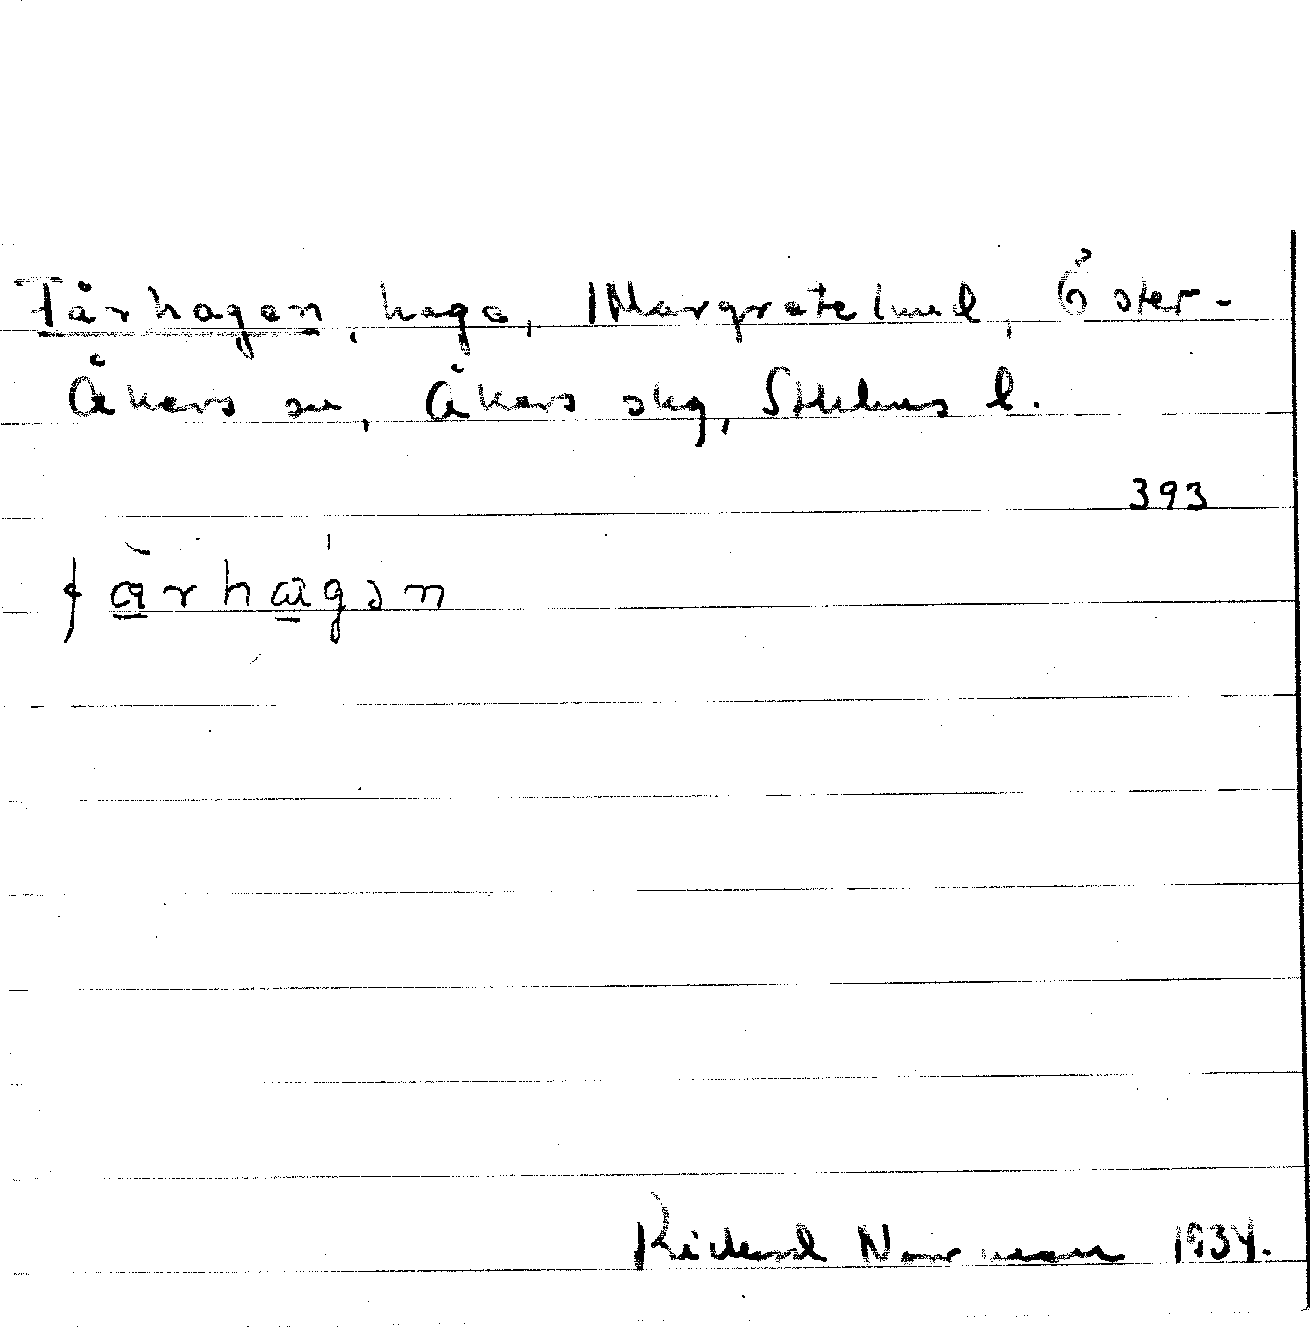 Fårhagen, hage, Margretelund, Öster-
Åkers sn, Åkers skg, Sthlms l.
393
fårhagən
Rickard Norman 1934.